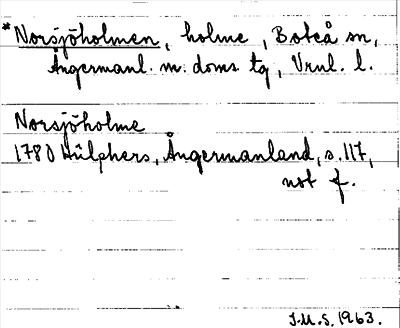 *Norsjöholmen, holme, Boteå sn,
Ångermanl. m. doms tg, Vrnl. l.
Norsjöholme
1780 Hülphers, Ångermanland, s. 117,
not f.
I.M.S. 1963.